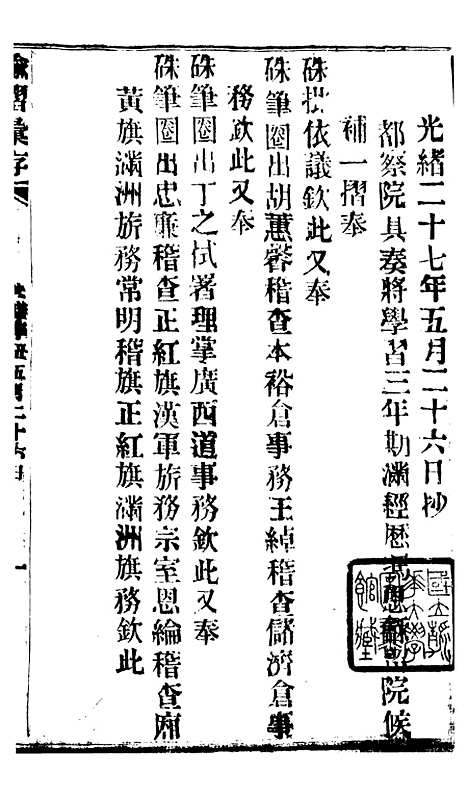 光緒二十七年五月二十六日抄
都察院具奏將學習三年期滿經歷院候
補一摺奉
硃批依議欽此又奉
硃筆圈出胡蕙馨稽查本裕倉事務王綽稽查儲濟倉事
務欽此又奉
硃筆圈出丁之栻署理掌廣西道事務欽此又奉
硃筆圈出忠廉稽查正紅旗漢軍旂務宗室恩綸稽查廂
黃旗滿洲旂務常明稽旗正紅旗滿洲旗務欽此
諭摺彙存
五月二十六日
一